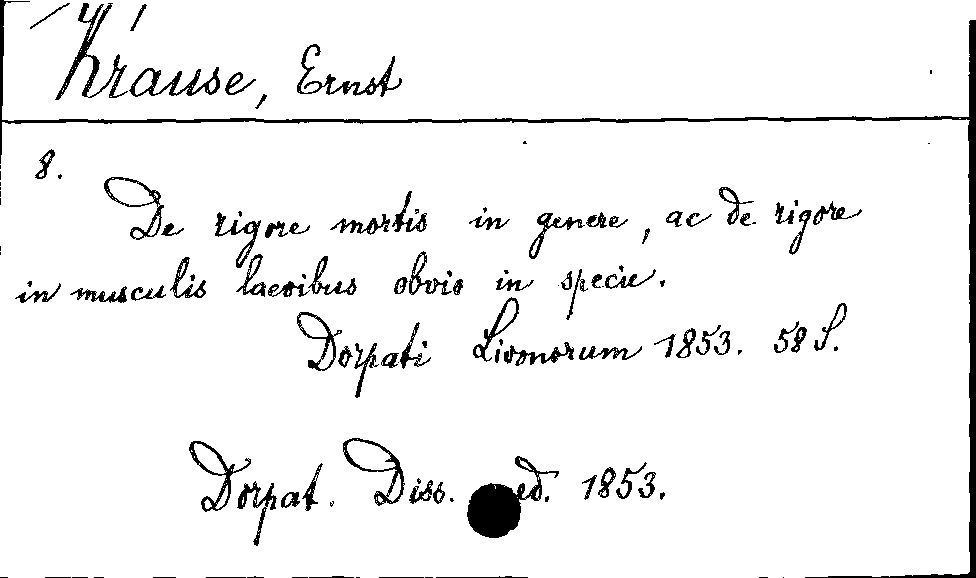 Krause, Ernst
8.
De rigore mortis in genere, ac de rigore
in musculis laevibus obvio in specie.
Dorpati Livonorum 1853. 58 S.
Dorpat. Diss. ed. 1853.